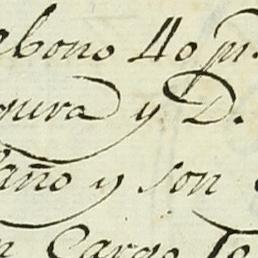 abono 40 p.
gura y D.
año y son
Cargo